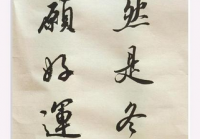 然是冬
願好運